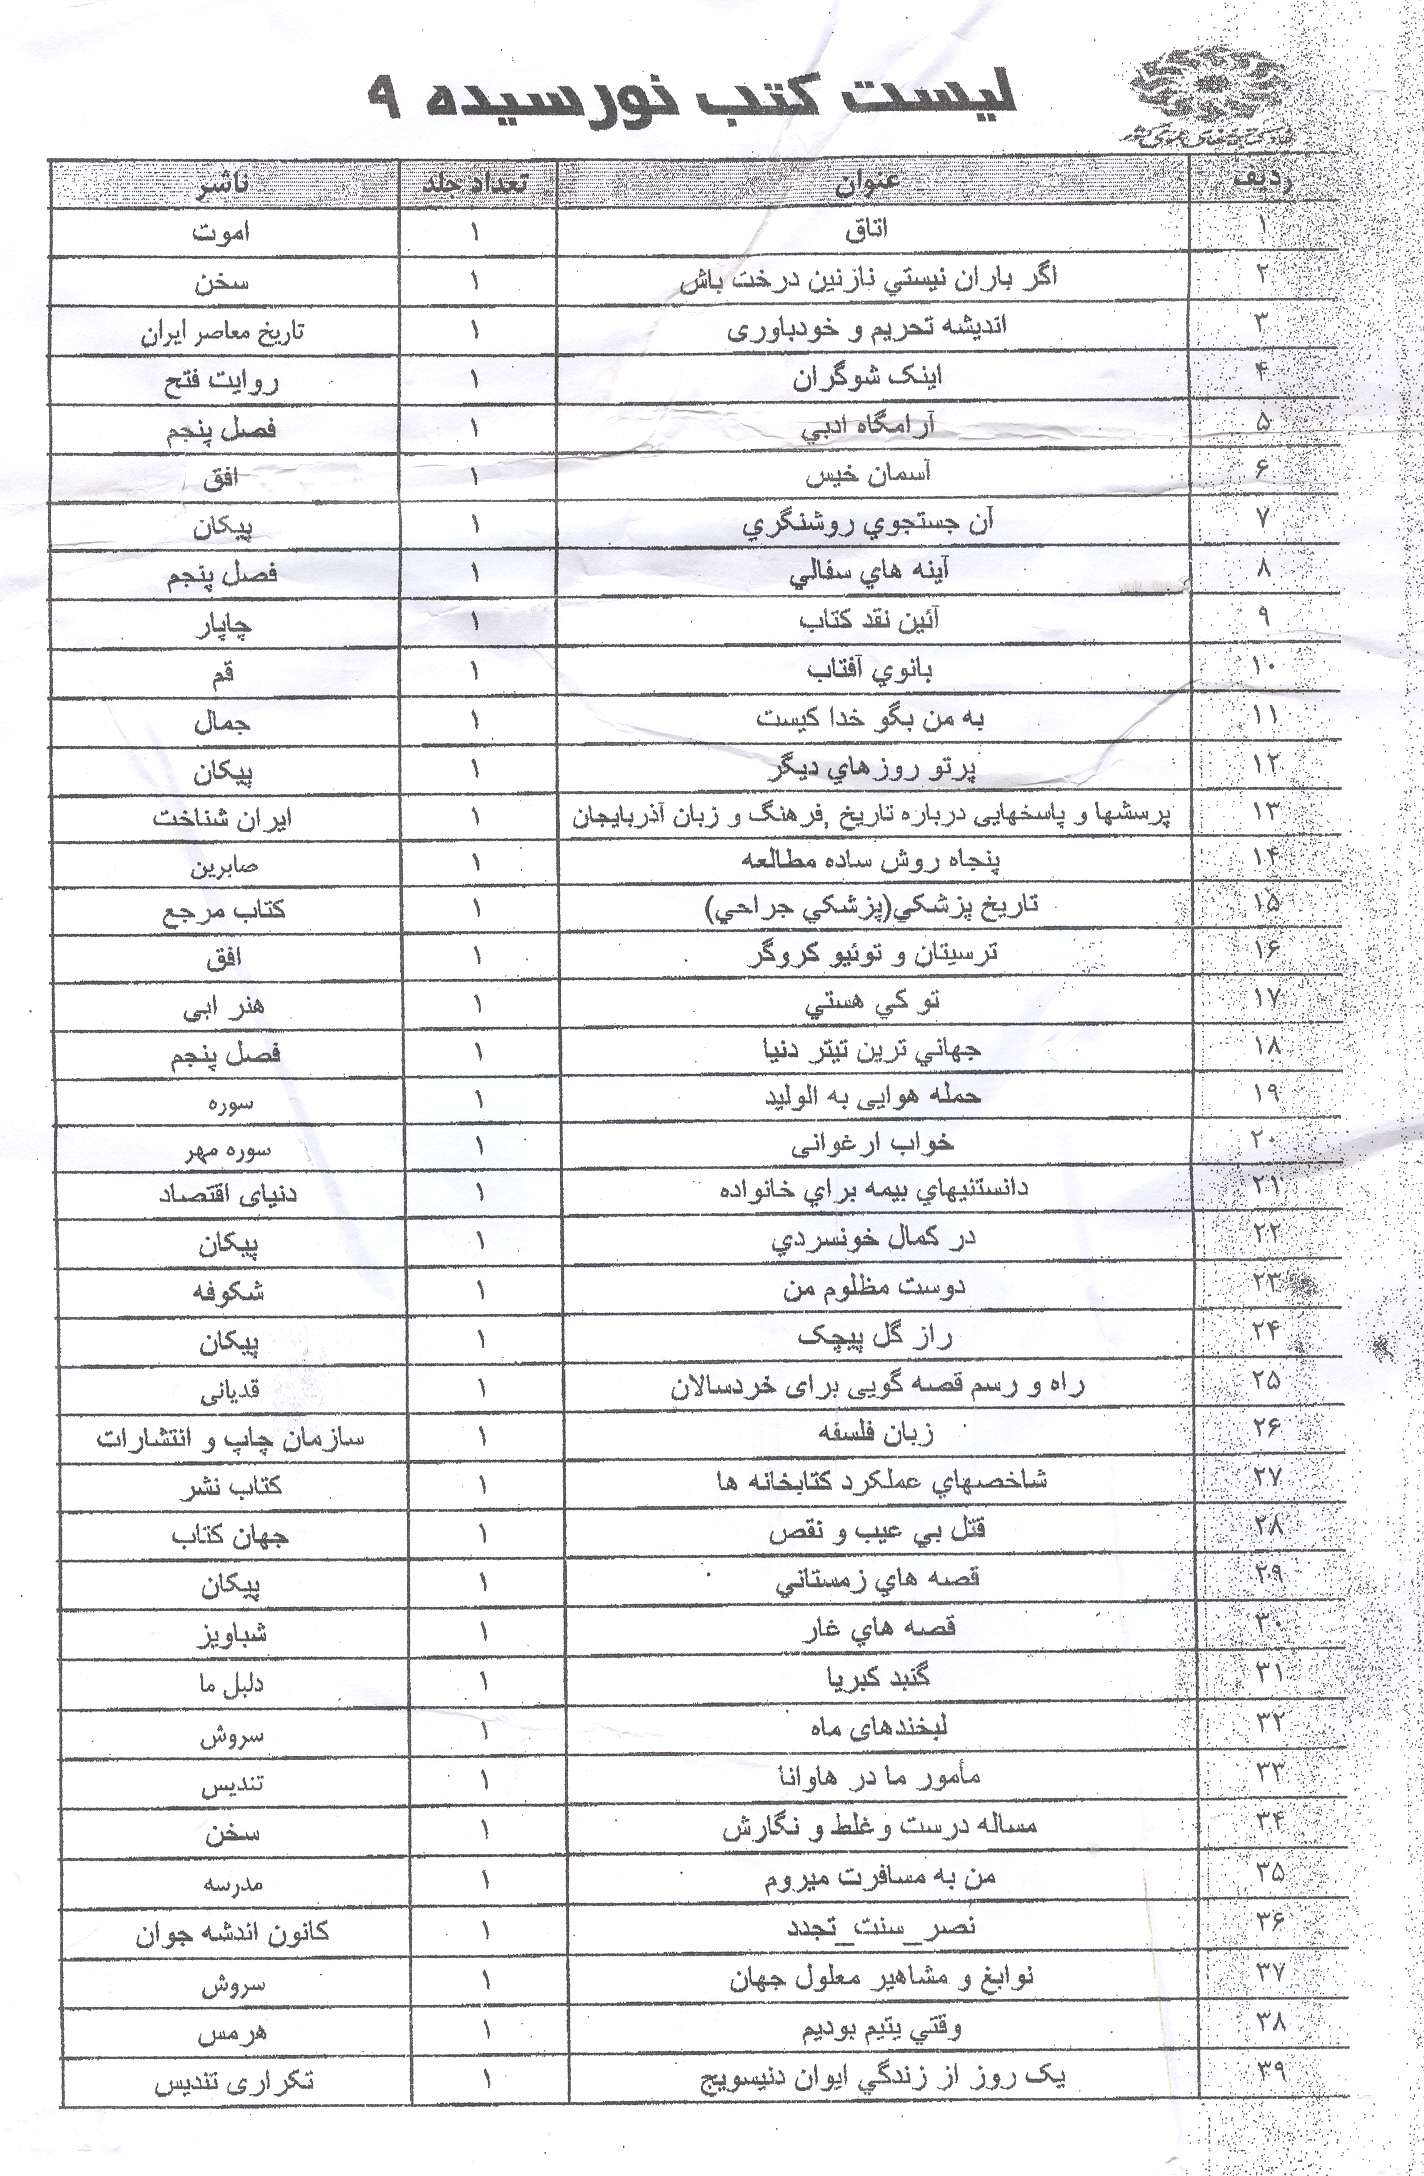 لیست کتب نورسیده ۹
ردیف عنوان تعداد جلد ناشر
۱ اتاق ۱ اموت
۲ اگر باران نیستي نازنین درخت باش ۱ سخن
۳ اندیشه تحریم و خودباوری ۱ تاریخ معاصر ایران
۴ اینک شوگران ۱ روایت فتح
۵ آرامگاه ادبي ۱ فصل پنجم
۶ آسمان خیس ۱ افق
۷ آن جستجوي روشنگري ۱ پیکان
۸ آینه هاي سفالي ۱ فصل پنجم
۹ آئین نقد کتاب ۱ چاپار
۱۰ بانوي آفتاب ۱ قم
۱۱ به من بگو خدا کیست ۱ جمال
۱۲ پرتو روزهاي دیگر ۱ پیکان
۱۳ پرسشها و پاسخهایی درباره تاریخ ,فرهنگ و زبان آذربایجان ۱ ایران شناخت
۱۴ پنجاه روش ساده مطالعه ۱ صابرین
۱۵ تاریخ پزشکي(پزشکي جراحي) ۱ کتاب مرجع
۱۶ ترسیتان و توئیو کروگر ۱ افق
۱۷ تو کي هستي ۱ هنر ابی
۱۸ جهاني ترین تیتر دنیا ۱ فصل پنجم
۱۹ حمله هوایی به الولید ۱ سوره
۲۰ خواب ارغوانی ۱ سوره مهر
۲۱ دانستنیهاي بیمه براي خانواده ۱ دنیای اقتصاد
۲۲ در کمال خونسردي ۱ پیکان
۲۳ دوست مظلوم من ۱ شکوفه
۲۴ راز گل پیچک ۱ پیکان
۲۵ راه و رسم قصه گویی برای خردسالان ۱ قدیانی
۲۶ زبان فلسفه ۱ سازمان چاپ و انتشارات
۲۷ شاخصهاي عملکرد کتابخانه ها ۱ کتاب نشر
۲۸ قتل بي عیب و نقص ۱ جهان کتاب
۲۹ قصه هاي زمستاني ۱ پیکان
۳۰ قصه هاي غار ۱ شباویز
۳۱ گنبد کبریا ۱ دلیل ما
۳۲ لبخندهای ماه ۱ سروش
۳۳ مأمور ما در هاوانا ۱ تندیس
۳۴ مساله درست و غلط و نگارش ۱ سخن
۳۵ من به مسافرت میروم ۱ مدرسه
۳۶ نصر_سنت_تجدد ۱ کانون اندشه جوان
۳۷ نوابغ و مشاهیر معلول جهان ۱ سروش
۳۸ وقتي یتیم بودیم ۱ هرمس
۳۹ یک روز از زندگي ایوان دنیسویج ۱ تکراری تندیس